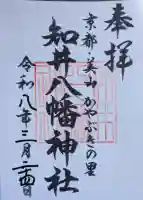 奉拝
京都・美山かやぶきの里
知井八幡神社
令和八年三月二四日